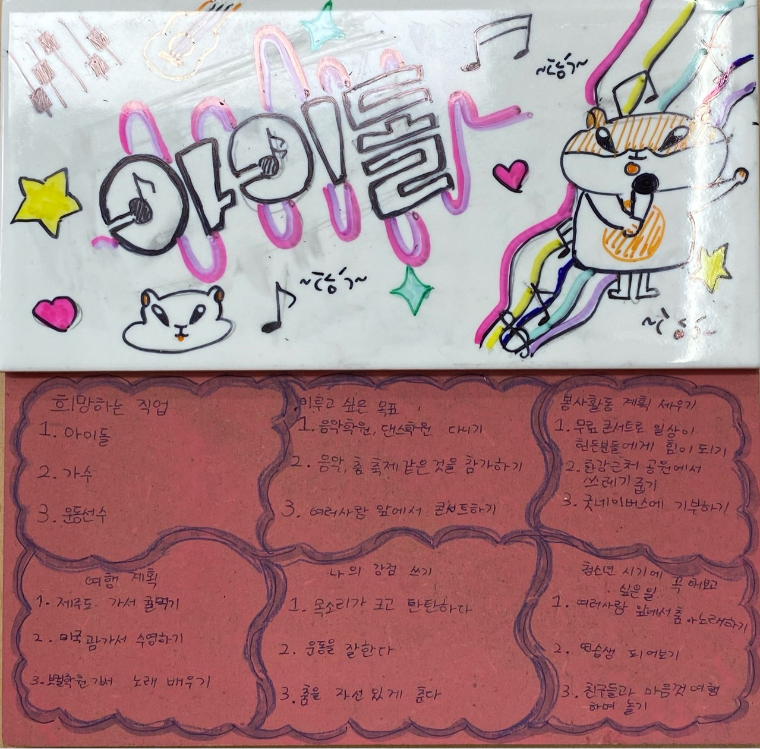 아이돌
~하하~
~하하~
~하하~
희망하는 직업
1. 아이돌
2. 가수
3. 운동선수
이루고 싶은 목표
1. 음악학원, 댄스학원 다니기
2. 음악, 춤 축제 같은 것을 참가하기
3. 여러사람 앞에서 콘서트하기
봉사활동 계획 세우기
1. 무료 콘서트로 일상이
힘든분들에게 힘이 되기
2. 한강근처 공원에서
쓰레기 줍기
3. 굿네이버스에 기부하기
여행 계획
1. 제주도 가서 귤먹기
2. 미국 괌가서 수영하기
3. 보컬학원 가서 노래 배우기
나의 강점 쓰기
1. 목소리가 크고 탄탄하다
2. 운동을 잘한다
3. 춤을 자신 있게 춘다
청소년 시기에 꼭 해보고
싶은 일
1. 여러사람 앞에서 춤, 노래하기
2. 연습생 되어보기
3. 친구들과 마음껏 여행
하며 놀기